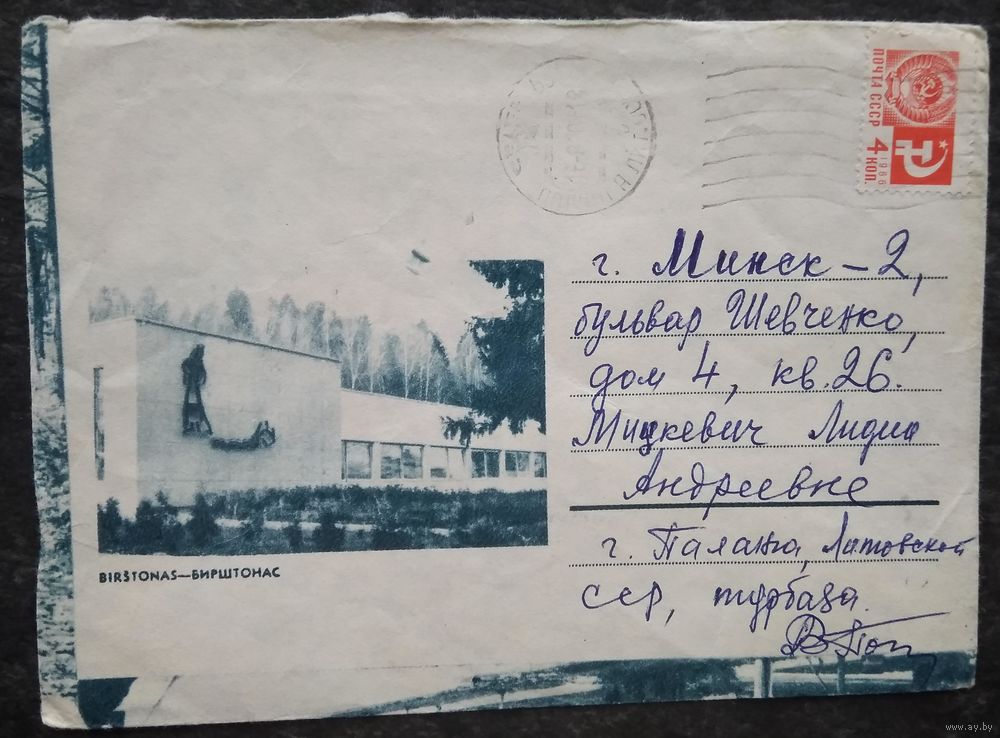 ПОЧТА СССР
4 КОП.
1966
г. Минск-2,
бульвар Шевченко,
дом 4, кв.26.
Мицкевич Лидии
Андреевне
г. Паланга, Литовской
сср, турбаза.
BIRŠTONAS—БИРШТОНАС
www.ay.by